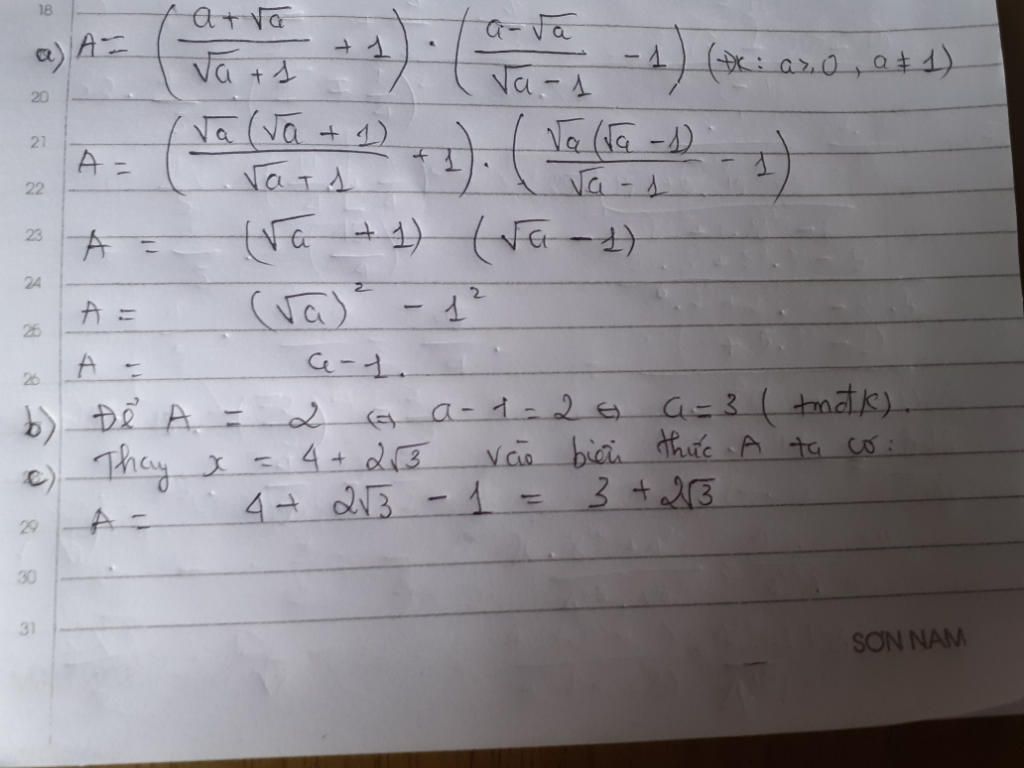 18
a) A = ( (a + √a)/(√a + 1) + 1 ) · ( (a - √a)/(√a - 1) - 1 ) (đk: a ≥ 0, a ≠ 1)
20
21
A = ( √a(√a + 1)/(√a + 1) + 1 ) · ( √a(√a - 1)/(√a - 1) - 1 )
22
23 A = (√a + 1) (√a - 1)
24
A = (√a)² - 1²
25
A = a - 1.
26
b) Để A = 2 ⇔ a - 1 = 2 ⇔ a = 3 (tmđk).
c) Thay x = 4 + 2√3 vào biểu thức A ta có:
29 A = 4 + 2√3 - 1 = 3 + 2√3
30
31
SƠN NAM